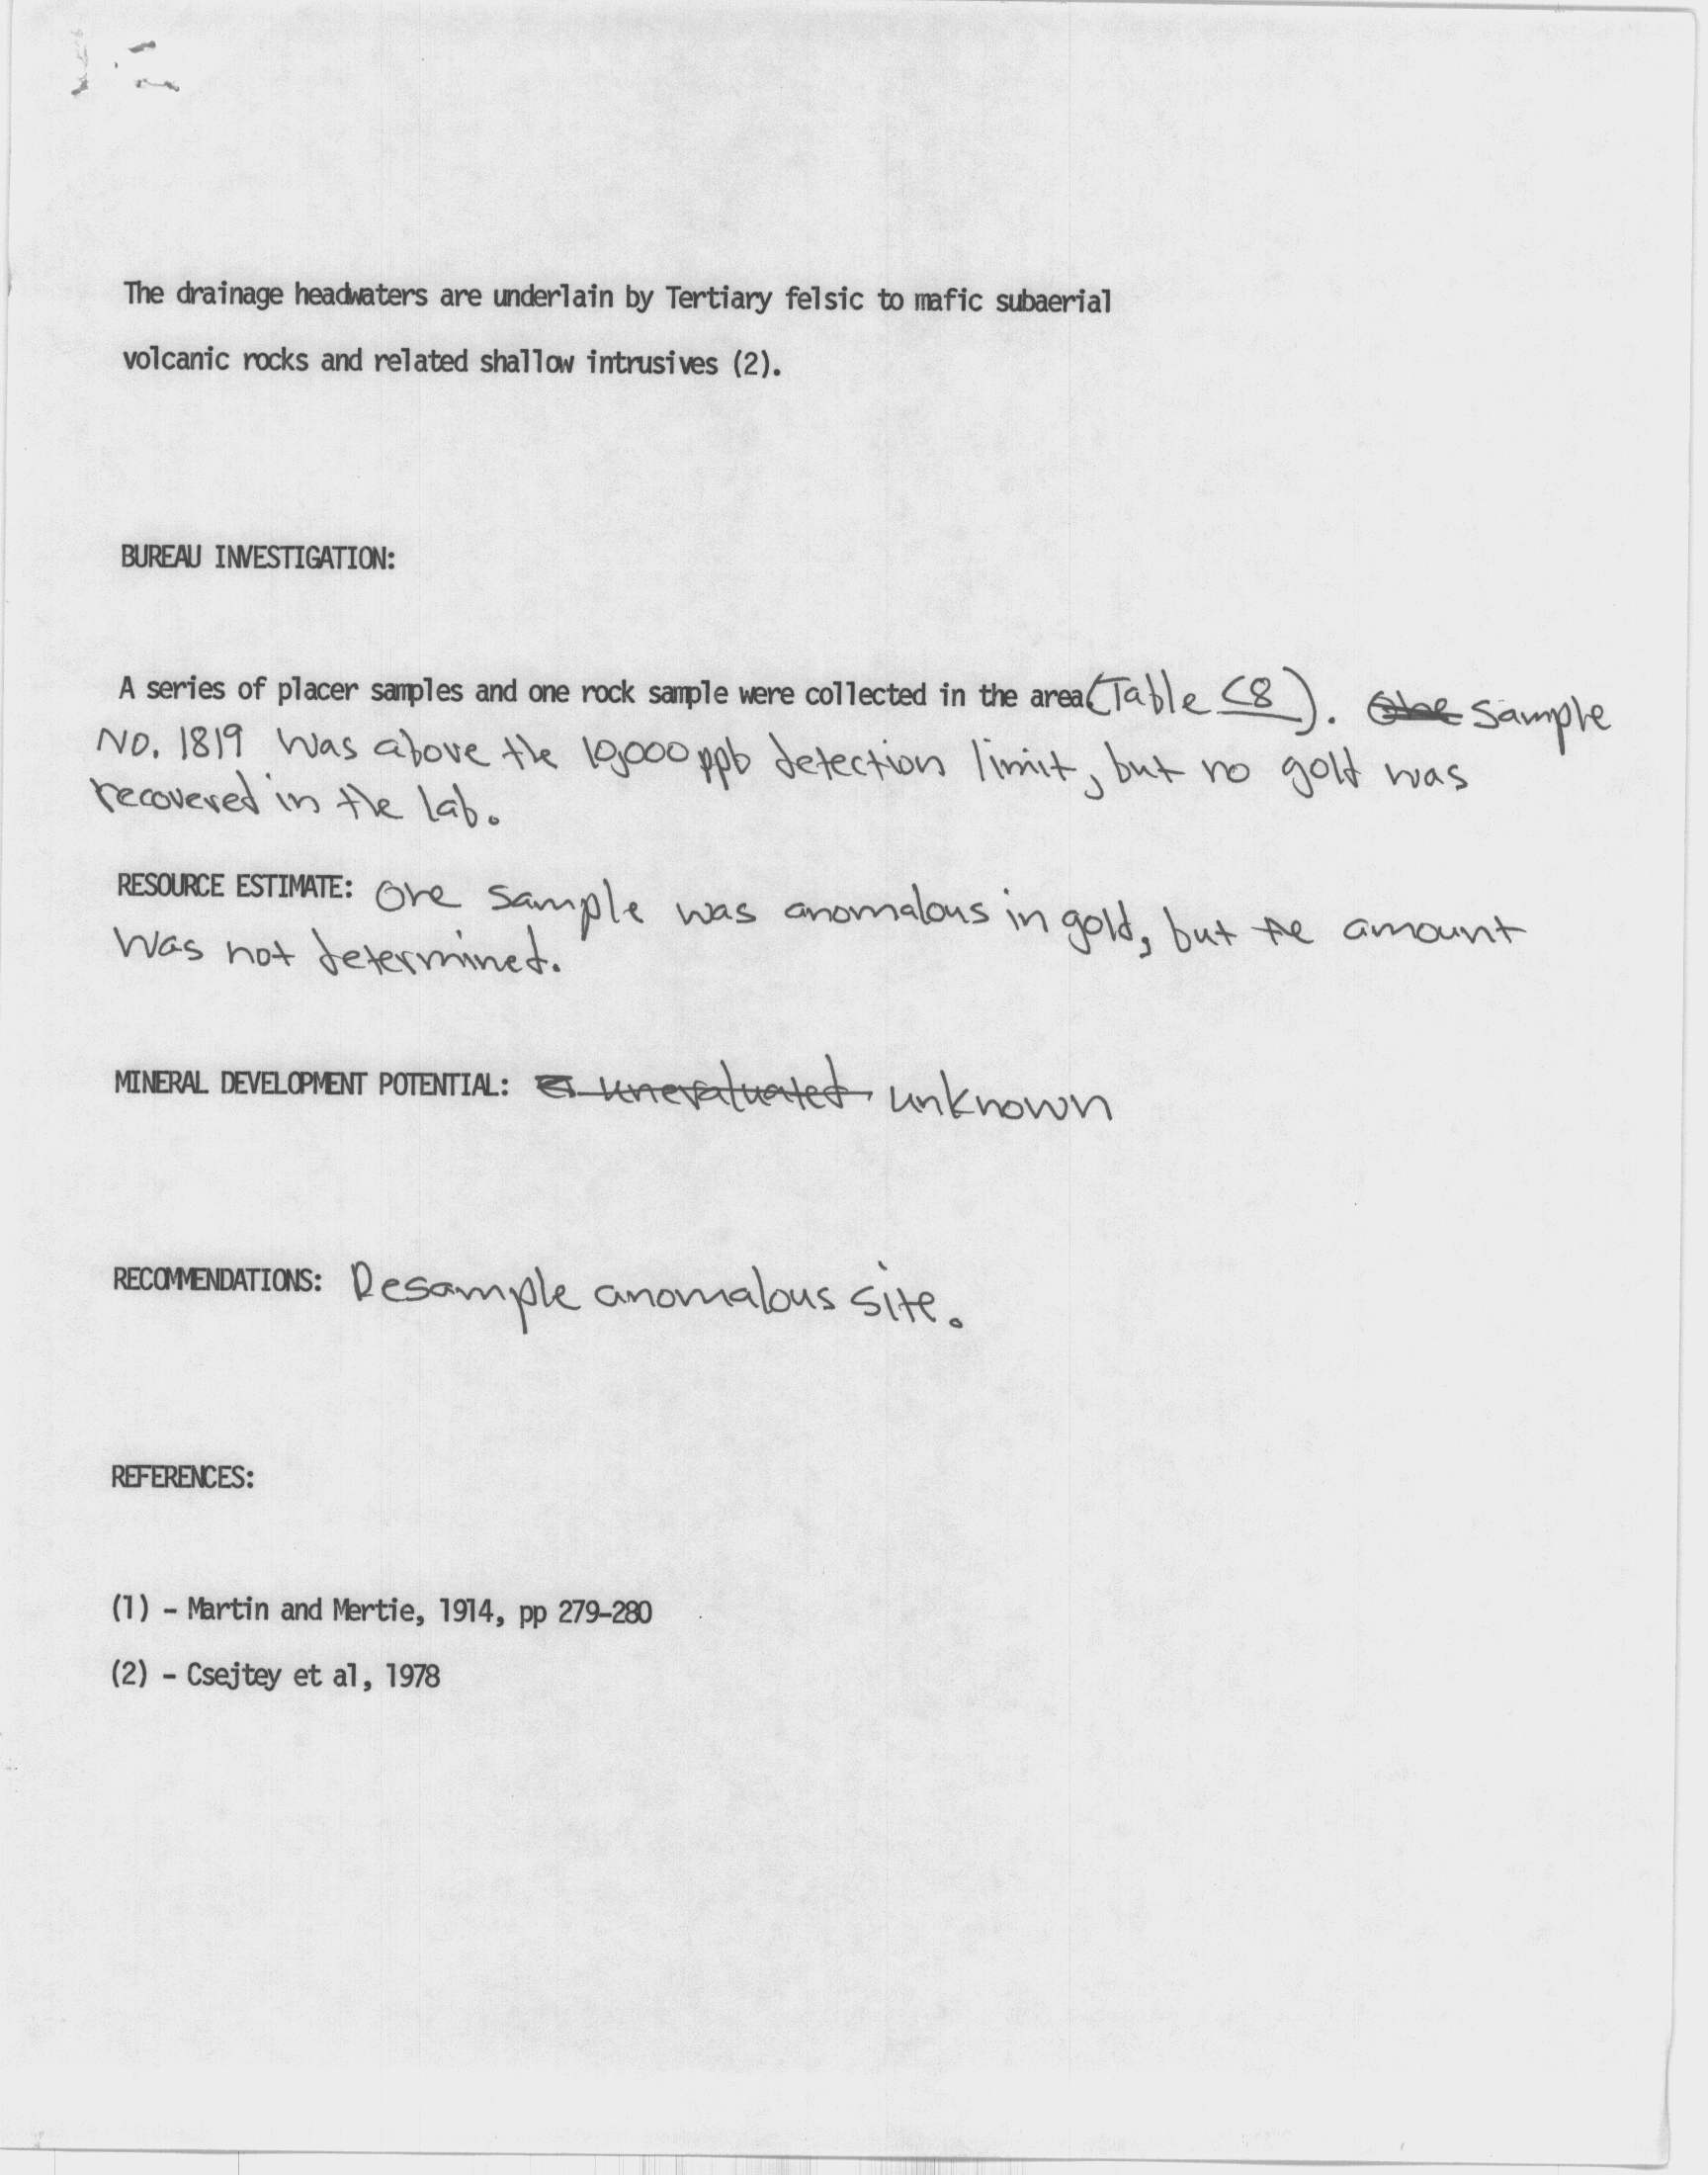 The drainage headwaters are underlain by Tertiary felsic to mafic subaerial
volcanic rocks and related shallow intrusives (2).
BUREAU INVESTIGATION:
A series of placer samples and one rock sample were collected in the area (Table C8). One sample
No. 1819 was above the 10,000 ppb detection limit, but no gold was
recovered in the lab.
RESOURCE ESTIMATE: One sample was anomalous in gold, but the amount
was not determined.
MINERAL DEVELOPMENT POTENTIAL: unevaluated unknown
RECOMMENDATIONS: Resample anomalous site.
REFERENCES:
(1) - Martin and Mertie, 1914, pp 279-280
(2) - Csejtey et al, 1978